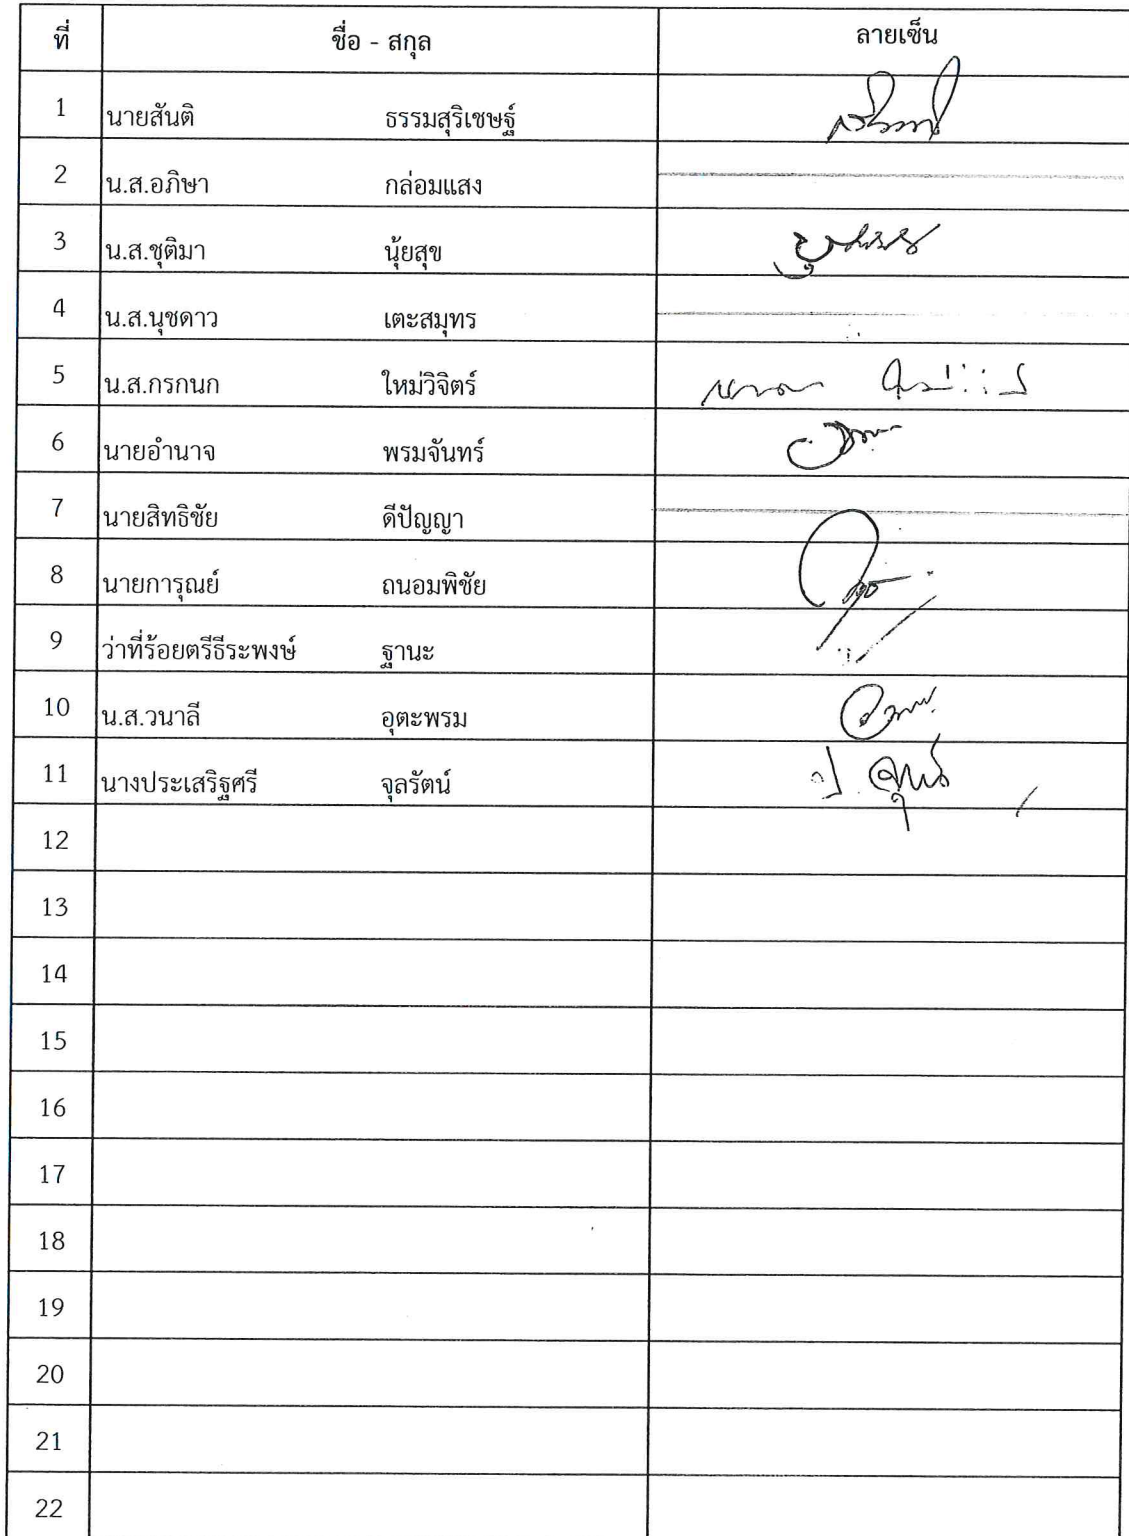 ที่ ชื่อ - สกุล ลายเซ็น
1 นายสันติ ธรรมสุริเชษฐ์
2 น.ส.อภิษา กล่อมแสง
3 น.ส.ชุติมา นุ้ยสุข
4 น.ส.นุชดาว เตะสมุทร
5 น.ส.กรกนก ใหม่วิจิตร์
6 นายอำนาจ พรมจันทร์
7 นายสิทธิชัย ดีปัญญา
8 นายการุณย์ ถนอมพิชัย
9 ว่าที่ร้อยตรีธีระพงษ์ ฐานะ
10 น.ส.วนาลี อุตะพรม
11 นางประเสริฐศรี จุลรัตน์
12
13
14
15
16
17
18
19
20
21
22